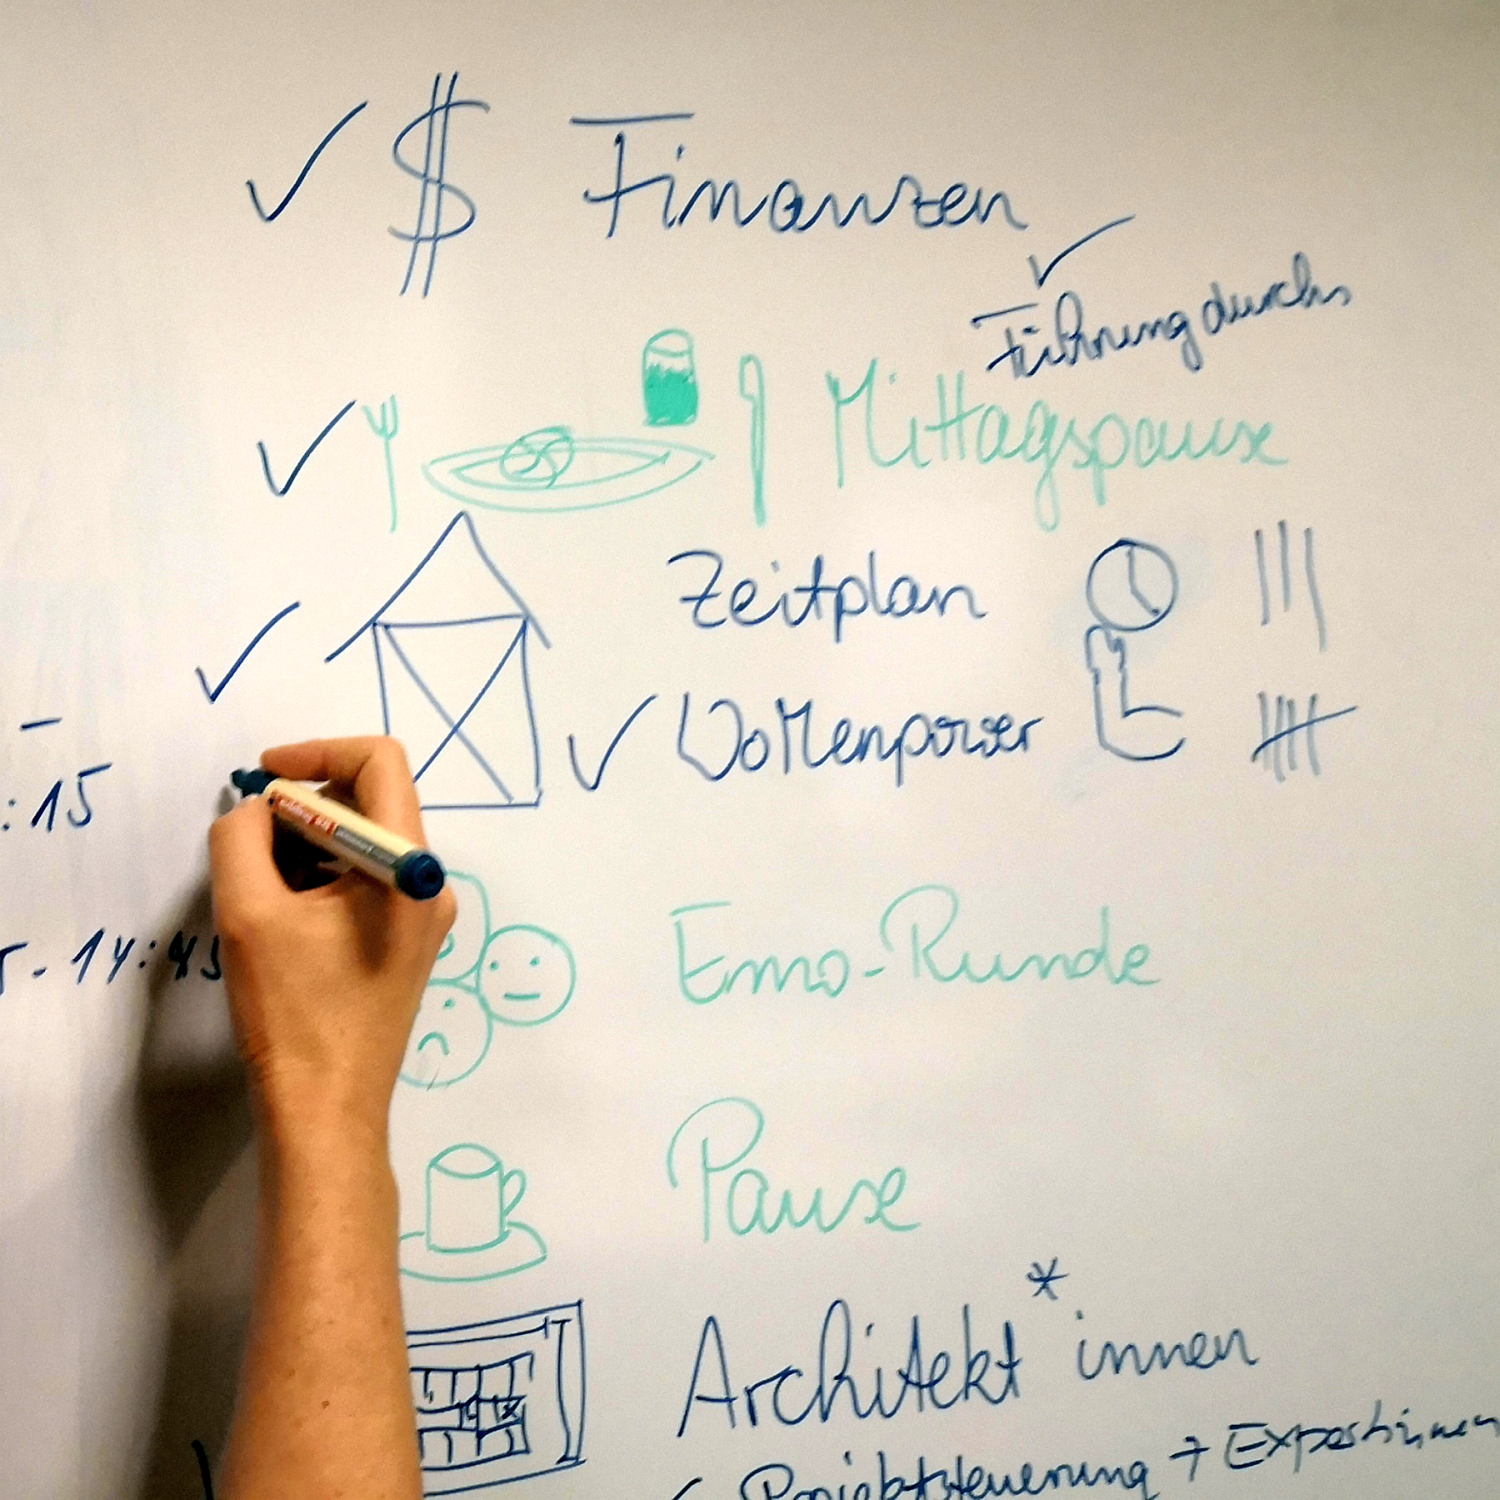 $ Finanzen
Führung durchs
Mittagspause
Zeitplan
–
:15
Wollenpower
- 14:45
Emo-Runde
Pause
Architekt*innen
Projektsteuerung + Expert:innen